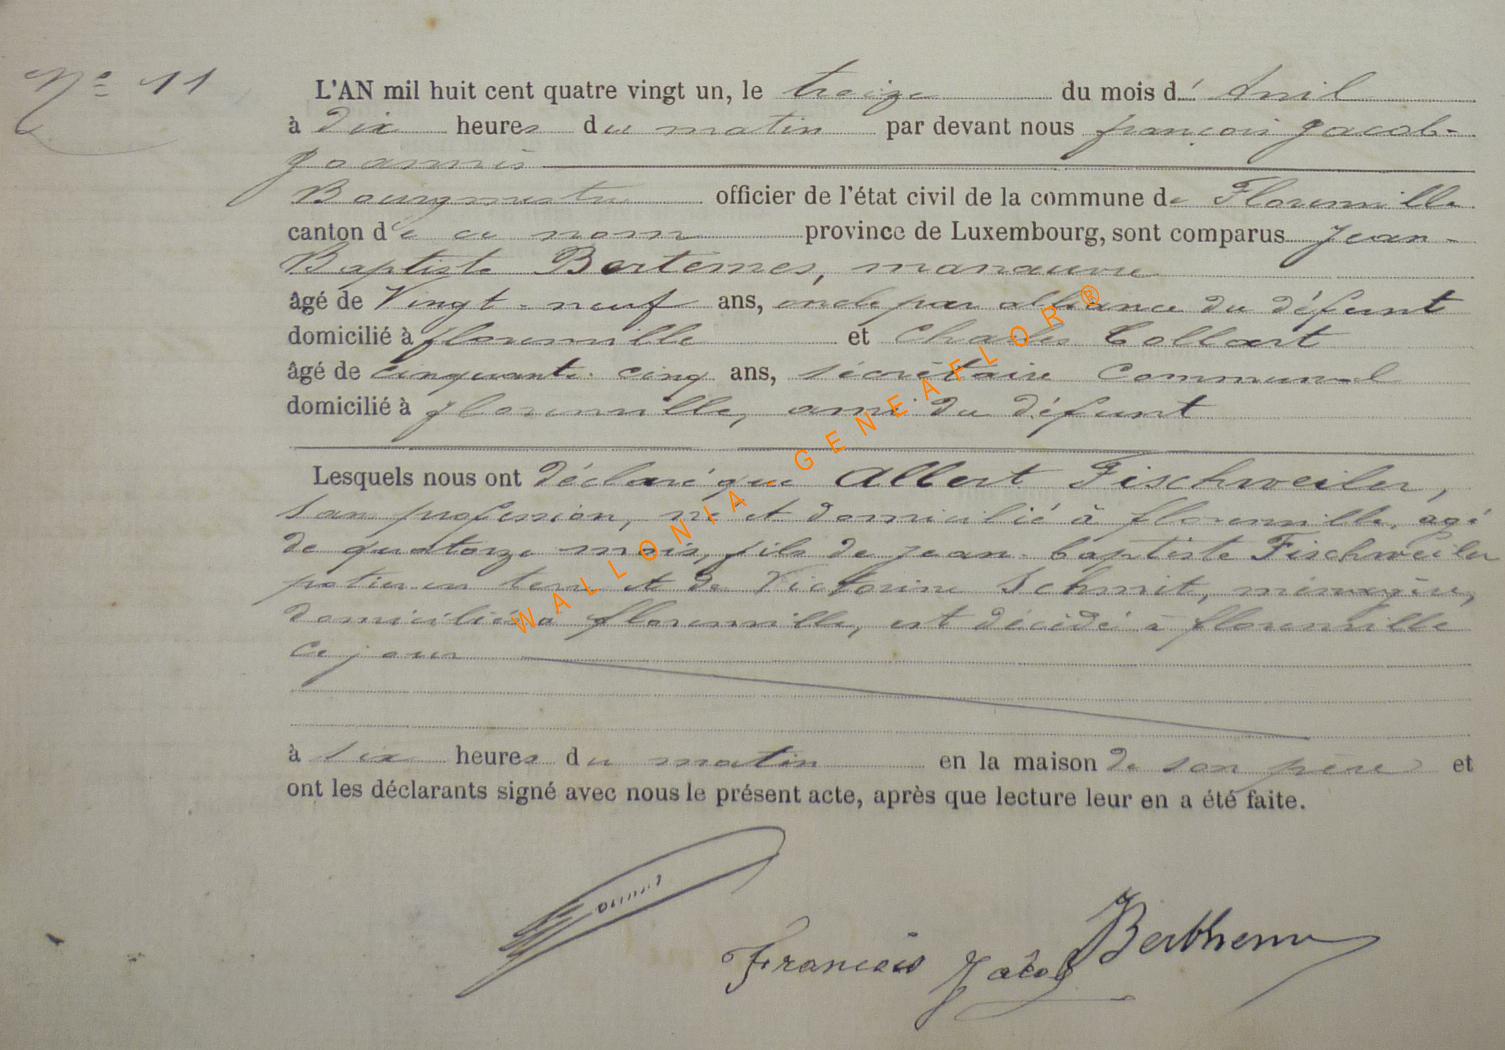 Nº 11
L'AN mil huit cent quatre vingt un, le treize du mois d' Avril
à dix heures du matin par devant nous françois Jacob-
Joannis
Bourgmestre officier de l'état civil de la commune de Florenville
canton de ce nom province de Luxembourg, sont comparus Jean-
Baptiste Bertemes, manœuvre
âgé de Vingt-neuf ans, oncle par alliance du défunt
domicilié à florenville et Charles Collart
âgé de cinquante-cinq ans, sécrétaire Communal
domicilié à florenville, ami du défunt
Lesquels nous ont déclaré que Albert Fischweiler,
san profession, né et domicilié à florenville, agé
de quatorze mois, fils de jean-baptiste Fischweiler
potier en terre et de Victorine Schmit, ménagère,
domiciliés à florenville, est décédé à florenville
ce jour
à six heures du matin en la maison de son père et
ont les déclarants signé avec nous le présent acte, après que lecture leur en a été faite.
Francois Jacob
WALLONIA - GENEAFLOR®